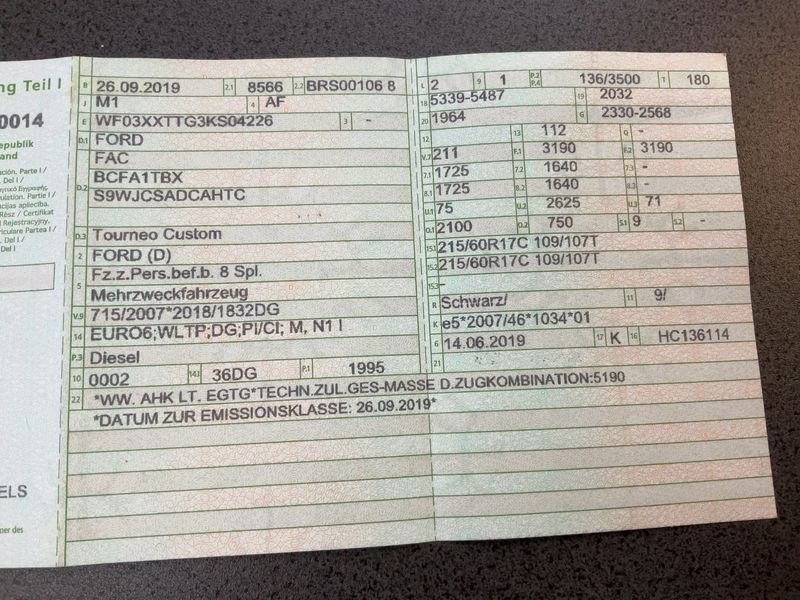 ng Teil I
0014
epublik
and
ación. Parte I /
. Del I /
ulation. Parte I /
cijas apliecība.
Rész / Certifikat
l Rejestracyjny,
riculare Partea I /
. Del I /
Del I
ELS
mer des
B 26.09.2019 2.1 8566 2.2 BRS00106 8
J M1 4 AF
E WF03XXTTG3KS04226 3 -
D.1 FORD
FAC
D.2 BCFA1TBX
S9WJCSADCAHTC
D.3 Tourneo Custom
2 FORD (D)
5 Fz.z.Pers.bef.b. 8 Spl.
Mehrzweckfahrzeug
V.9 715/2007*2018/1832DG
14 EURO6;WLTP;DG;PI/CI; M, N1 I
P.3 Diesel
10 0002 14.1 36DG P.1 1995
22 *WW. AHK LT. EGTG*TECHN.ZUL.GES-MASSE D.ZUGKOMBINATION:5190
*DATUM ZUR EMISSIONSKLASSE: 26.09.2019*
L 2 9 1 P.2 P.4 136/3500 T 180
18 5339-5487 19 2032
20 1964 G 2330-2568
12 13 112 Q -
V.7 211 F.1 3190 F.2 3190
7.1 1725 7.2 1640 7.3 -
8.1 1725 8.2 1640 8.3 -
U.1 75 U.2 2625 U.3 71
O.1 2100 O.2 750 S.1 9 S.2 -
15.1 215/60R17C 109/107T
15.2 215/60R17C 109/107T
15.3 -
R Schwarz/ 11 9/
K e5*2007/46*1034*01
6 14.06.2019 17 K 16 HC136114
21